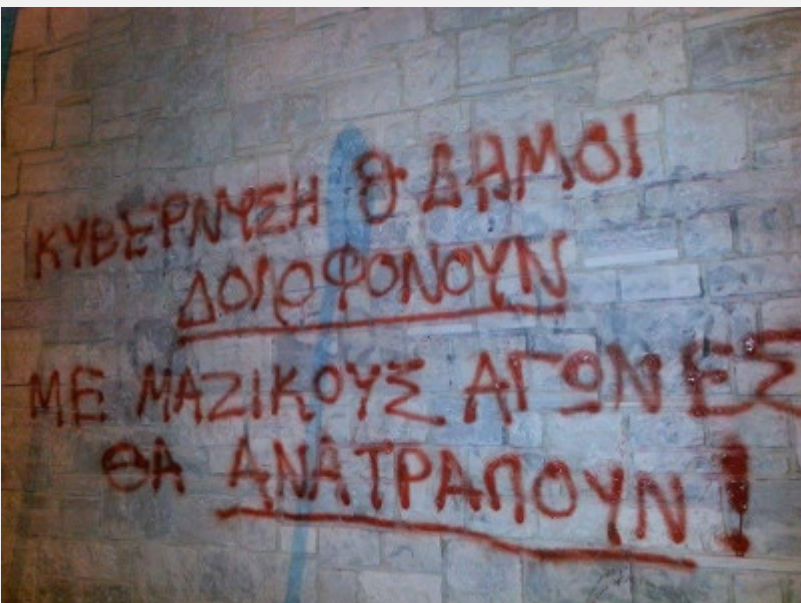 ΚΥΒΕΡΝΥΣΗ & ΔΗΜΟΙ
ΔΟΛΟΦΟΝΟΥΝ
ΜΕ ΜΑΖΙΚΟΥΣ ΑΓΩΝΕΣ
ΘΑ ΑΝΑΤΡΑΠΟΥΝ!